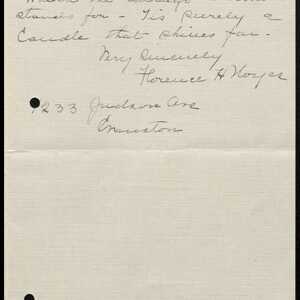 stands for - Tis purely a
Candle that shines far.
Very Sincerely
Florence H Noyes
1233 Judson Ave
Evanston